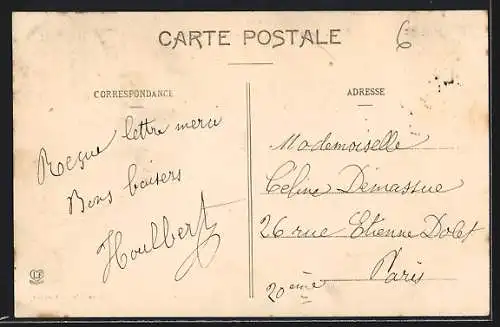 CARTE POSTALE
6
CORRESPONDANCE
ADRESSE
Reçue lettre merci
Bons baisers
Houlbert
Mademoiselle
Céline Démassue
26 rue Etienne Dolet
Paris
20ème